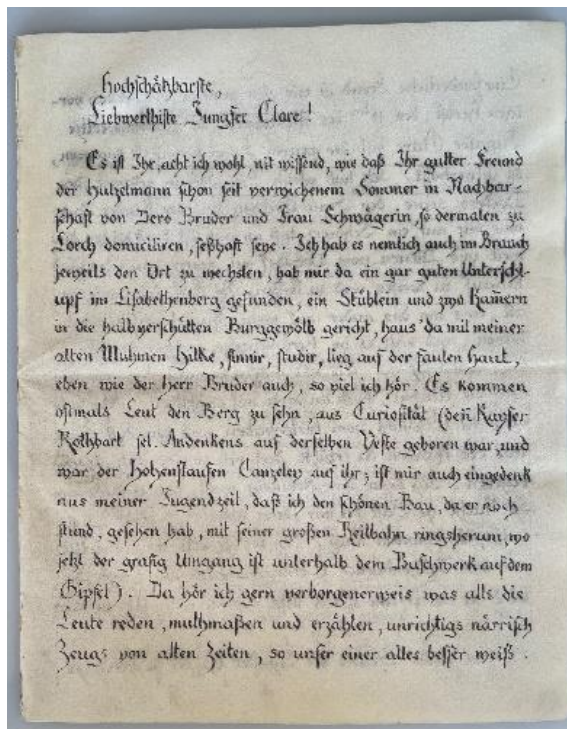 Hochschätzbarste,
Liebwerthiste Jungfer Clare!
Es ist Ihr, acht ich wohl, nit wissend, wie daß Ihr gutter Freund
der Hutzelmann schon seit verwichenem Sommer in Nachbar-
schaft von Dero Bruder und Frau Schwägerin, so dermalen zu
Lorch domiciliren, seßhaft seye. Ich hab es nemlich auch im Brauch
jeweils den Ort zu wechslen, hab mir da ein gar guten Unterschl-
upf im Lisabethenberg gefunden, ein Stüblein und zwo Kam̄ern
in die halbverschütten Burggewölb gericht, haus' da mit meiner
alten Muhmen Hilke, sinnir, studir, lieg auf der faulen Haut,
eben wie der Herr Bruder auch, so viel ich hör. Es kommen
oftmals Leut den Berg zu sehn, aus Curiosität (den̄ Kayser
Rothbart sel. Andenkens auf derselben Veste geboren war, und
war der Hohenstaufen Canzeley auf ihr; ist mir auch eingedenk
aus meiner Jugendzeit, daß ich den schönen Bau, da er noch
stund, gesehen hab, mit seiner großen Reitbahn ringsherum, wo
jetzt der grasig Umgang ist unterhalb dem Buschwerk auf dem
Gipfel). Da hör ich gern verborgenerweis was alls die
Leute reden, muthmaßen und erzählen, unrichtigs närrisch
Zeugs von alten Zeiten, so unser einer alles besser weiß.